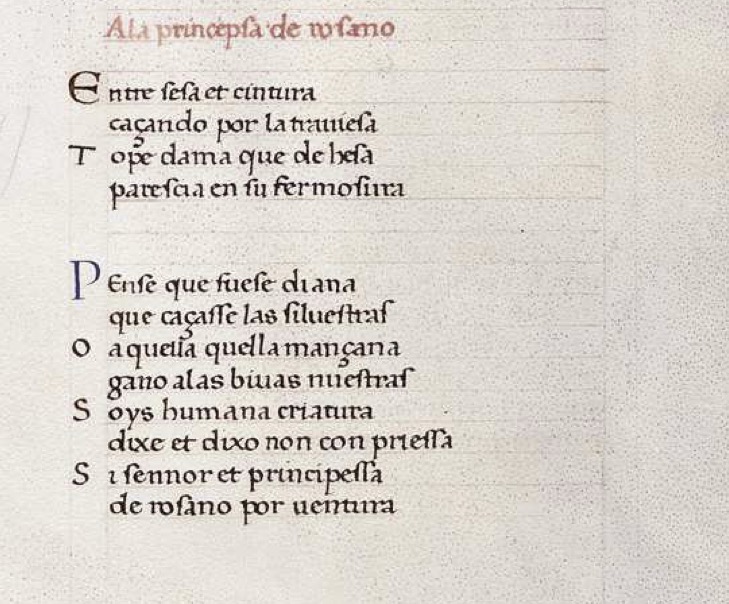 Ala princepsa de rosano
Entre sesa et cintura
caçando por la trauiesa
Tope dama que de hesa
parescia en su fermosura
PEnse que fuese diana
que caçasse las siluestras
o aquella quella mançana
gano alas biuas nuestras
Soys humana criatura
dixe et dixo non con priessa
Si sennor et principessa
de rosano por uentura